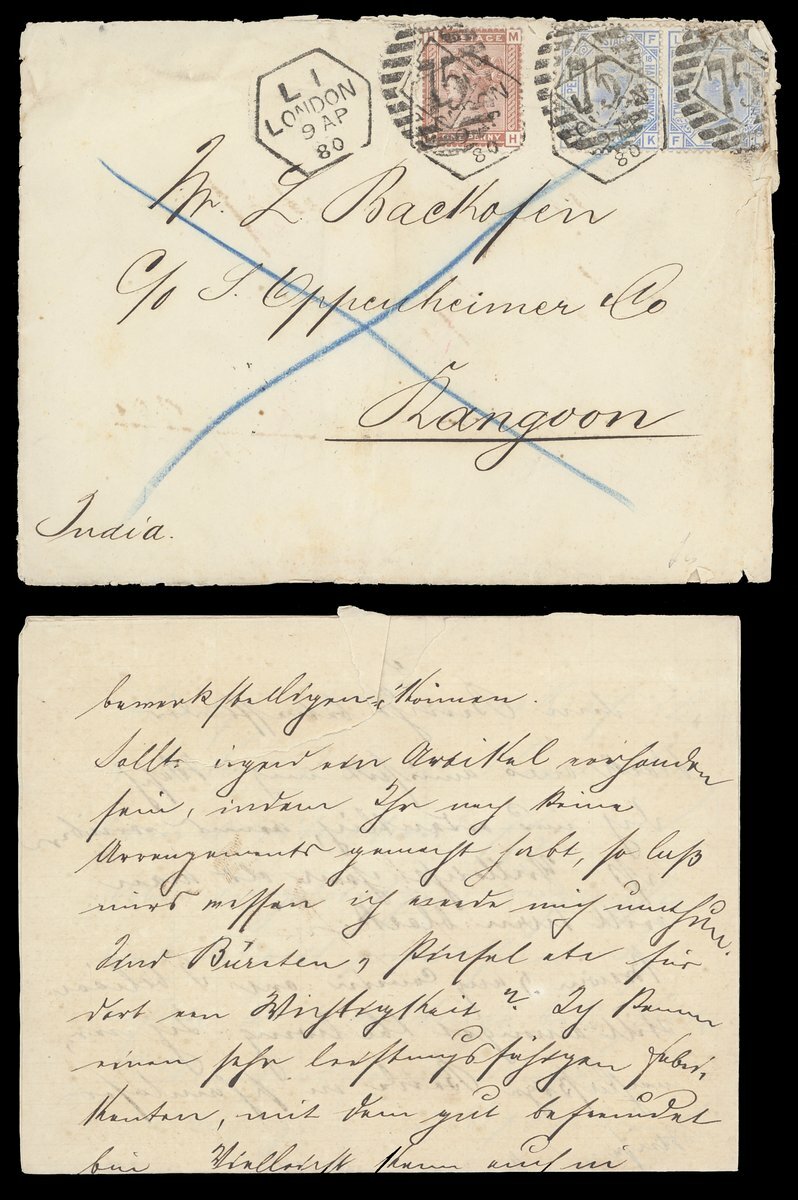 L 1
LONDON
9 AP
80
POSTAGE
M
75
H
80
75
F
K
F
80
75
Mr. L Backofen
c/o S. Oppenheimer & Co
Rangoon
India.
bewerkstelligen können.
Sollte irgend ein Artikel vorhanden
sein, indem Ihr noch keine
Arrangements gemacht habt, so laß
mirs wissen ich werde mich umthun.
Sind Bürsten, Pinsel etc für
dort von Wichtigkeit? Ich kenne
einen sehr leistungsfähigen Fabri-
kanten, mit dem gut befreundet
bin Vielleicht kann auch in